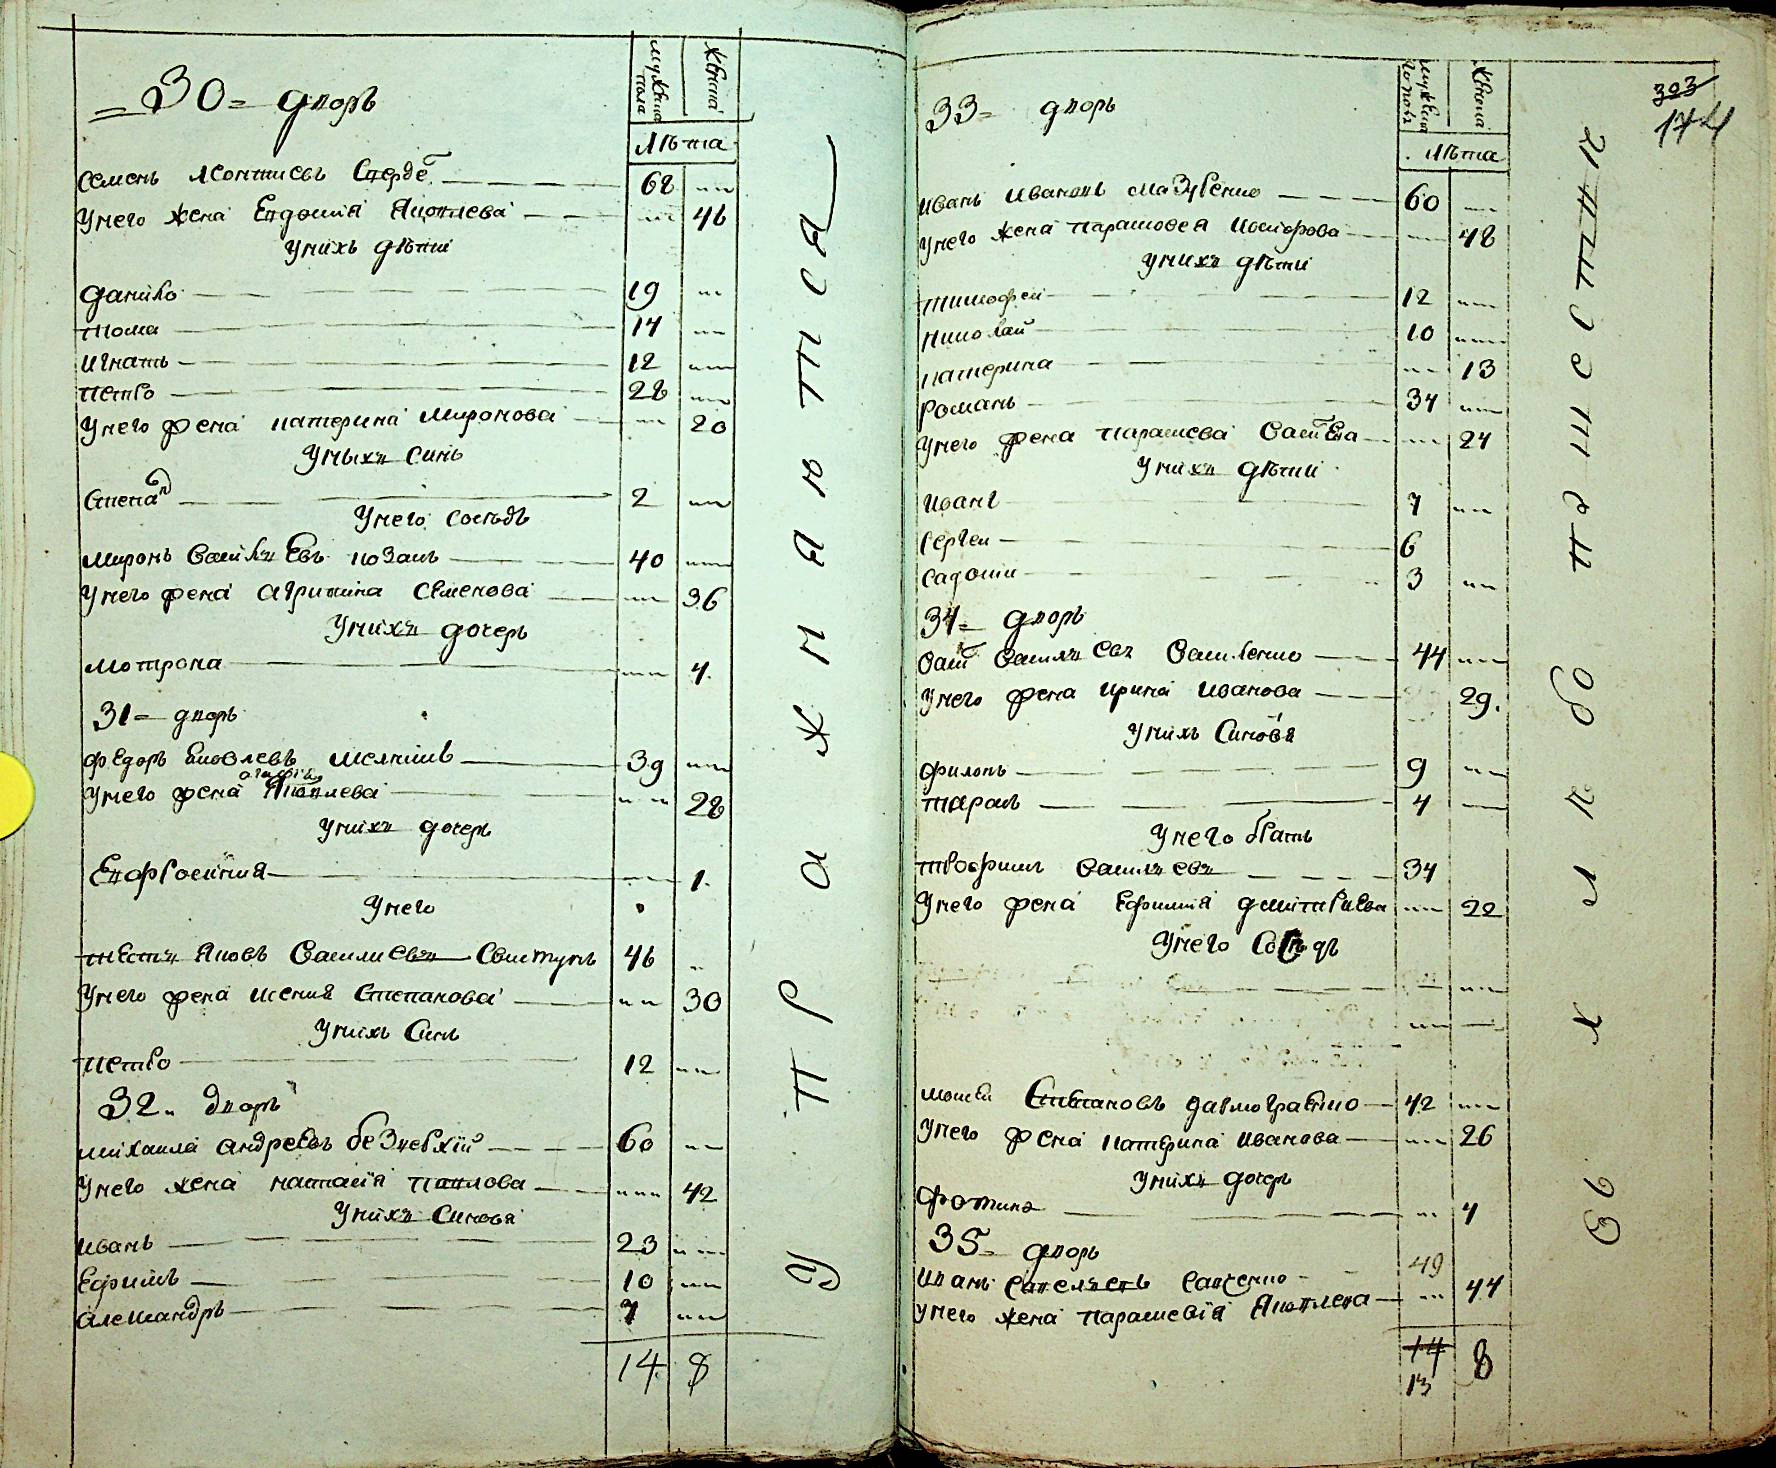 30 дворъ
мужеска пола
женска
Лѣта
Семенъ Леонтиевъ 68
У него жена Евдокия Яковлева 46
У нихъ дѣти
Данило 19
Тома 14
Игнатъ 12
Петро 28
У него жена Катерина Миронова 20
У ныхъ синъ
Степанъ 2
У него сосѣдъ
Миронъ Василъевъ Козакъ 40
У него жена Агрипина Семенова 36
У нихъ дочеръ
Мотрона 4
31 дворъ
Федоръ Яковлевъ 39
агафия
У него жена Яковлева 28
У нихъ дочеръ
Евфросиния 1
У него
тестъ Яковъ Василиевъ Свистунъ 46
У него жена Ксения Степанова 30
У нихъ Синъ
Петро 12
32 дворъ
Михаила Андреевъ Безверхий 60
У него жена Наталия Павлова 42
У нихъ Синовя
Иванъ 23
Ефимъ 10
Александръ 7
14 8
У П Р А Ж Н Я Ю П С Я
303
174
33 дворъ
мужеска полу
женска
Лѣта
Иванъ Ивановъ Мазуренко 60
У него жена Парасковея Йосифова 48
У нихъ дѣти
Тимофей 12
Николай 10
Катерина 13
Романъ 34
У него жена Параскева 24
У нихъ дѣти
Иванъ 7
Сергеи 6
3
34 дворъ
Василъевъ Василенко 44
У него жена Ирина Иванова 29
У нихъ Синовя
Филипъ 9
Тарасъ 4
У него братъ
Трофимъ Василъевъ 34
У него жена Ефимия Дмитриева 22
У него Сосѣдъ
Моисей Степановъ 42
У него жена Катерина Иванова 26
У нихъ дочеръ
Фотина 4
35 дворъ
Иванъ Савелъевъ Савченко 49
У него жена Параскевия Яковлева 44
14 8
13